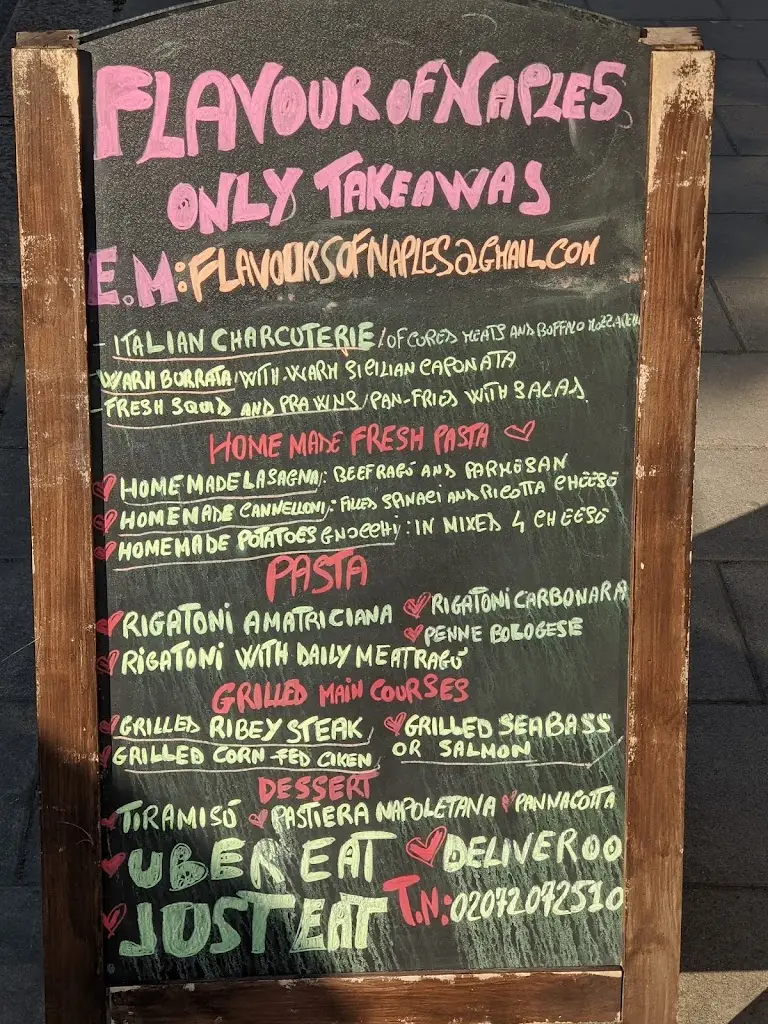 FLAVOUR OF NAPLES
ONLY TAKEAWAS
E.M: FLAVOURSOFNAPLES@GMAIL.COM
- ITALIAN CHARCUTERIE / OF CURED MEATS AND BUFFALO MOZZARELLA
- WARM BURRATA / WITH WARM SICILIAN CAPONATA
- FRESH SQUID AND PRAWNS / PAN-FRIED WITH SALAD
HOME MADE FRESH PASTA ♡
HOME MADE LASAGNA: BEEF RAGÚ AND PARMESAN
HOMEMADE CANNELLONI: FILLED SPINACI AND RICOTTA CHEESE
HOMEMADE POTATOES GNOCCHI: IN MIXED 4 CHEESE
PASTA
RIGATONI AMATRICIANA ♡ RIGATONI CARBONARA
♡ PENNE BOLOGESE
RIGATONI WITH DAILY MEATRAGÚ
GRILLED MAIN COURSES
GRILLED RIBEY STEAK ♡ GRILLED SEABASS
GRILLED CORN-FED CIKEN OR SALMON
DESSERT
TIRAMISÚ ♡ PASTIERA NAPOLETANA ♡ PANNACOTTA
UBER EAT ♡ DELIVEROO
JUST EAT T.N: 02072072510